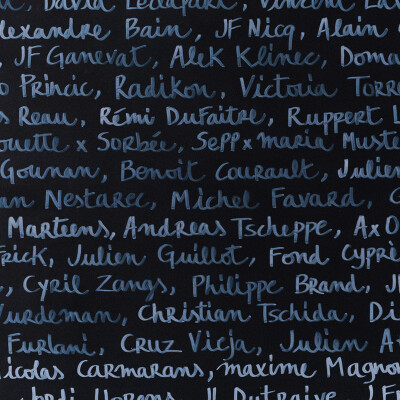 David Leclapart, Vincent
Alexandre Bain, JF Nicq, Alain
, JF Ganevat, Alek Klinec, Doma
o Princic, Radikon, Victoria Torre
s Reau, Rémi DuFaitre, Ruppert L
ouette x Sorbée, Sepp x maria Muste
Gounan, Benoit Courault, Julien
an Nestarec, Michel Favard, G
Marteens, Andreas Tscheppe, Ax O
Frick, Julien Guillot, Fond Cyprè
, Cyril Zangs, Philippe Brand, JF
Wurdeman, Christian Tschida, Di
Furlani, Cruz Vieja, Julien A
Nicolas Carmarans, maxime Magnon
Jordi Llorens, JL Dutraive,